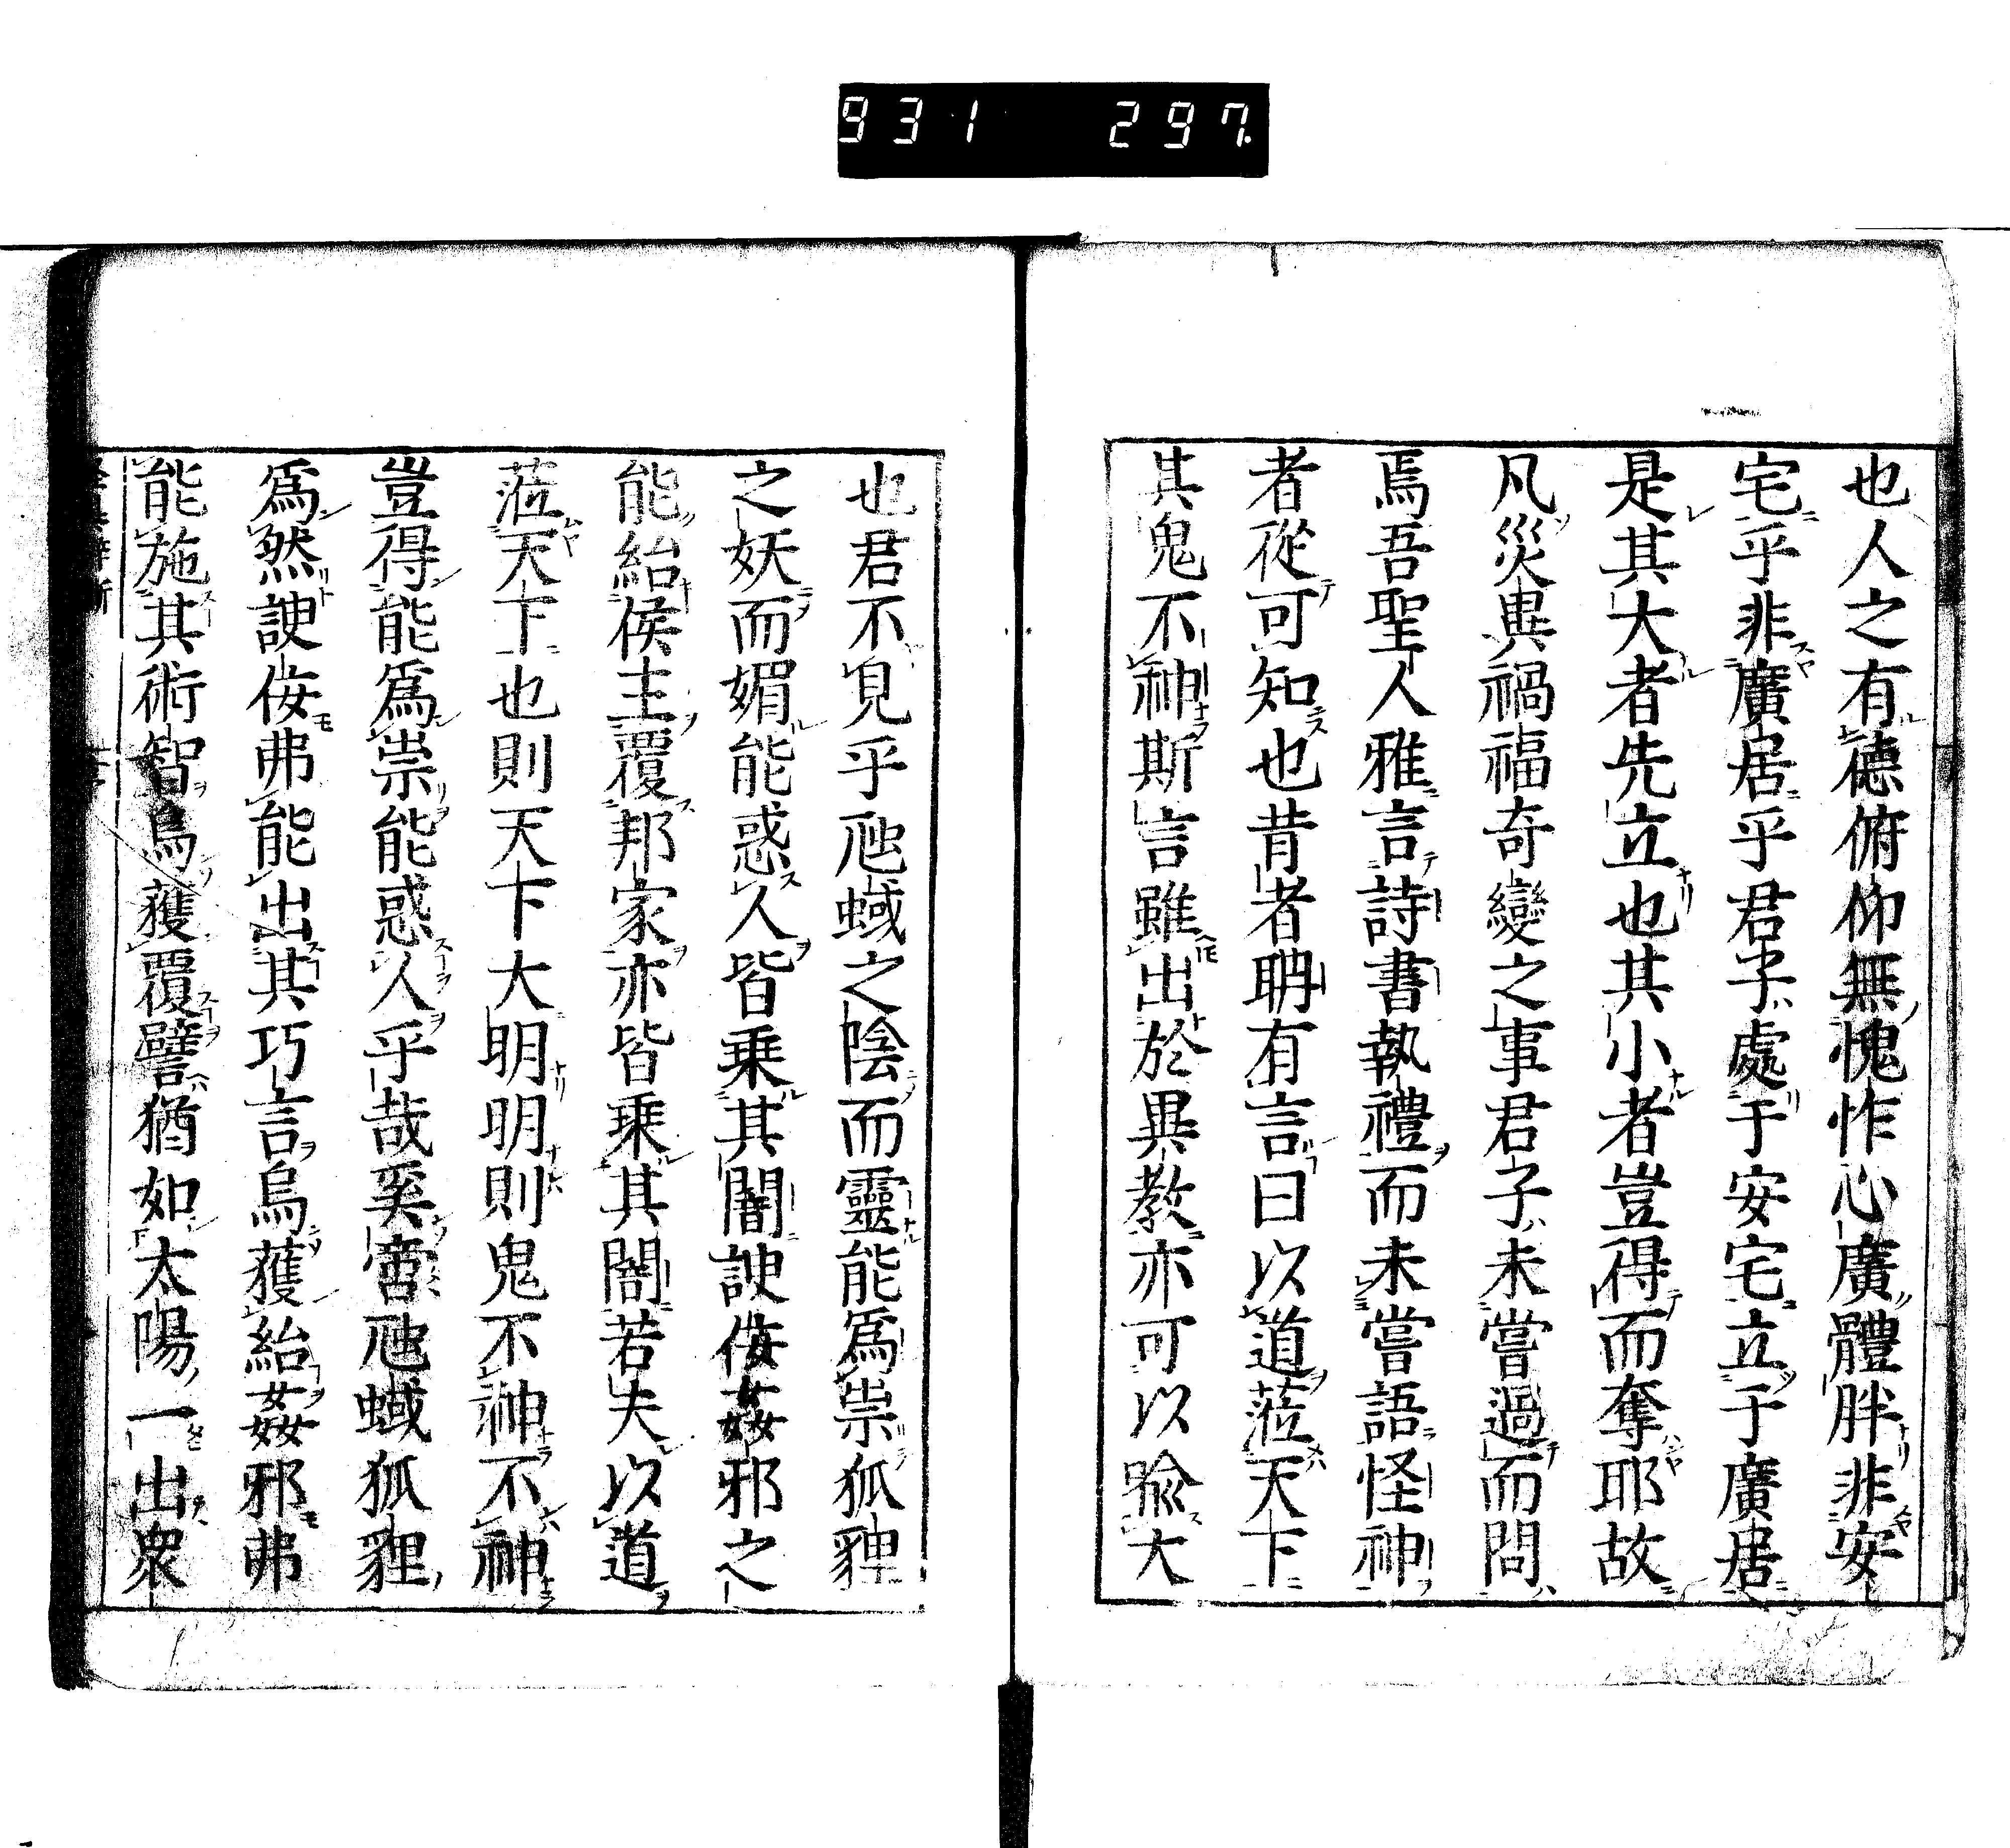 931 297
也人之有德俯仰無愧怍心廣體胖非安
宅乎非廣居乎君子處于安宅立于廣居
是其大者先立也其小者豈得而奪耶故
凡災異禍福奇變之事君子未嘗過而問
焉吾聖人雅言詩書執禮而未嘗語怪神
者從可知也昔者聃有言曰以道莅天下
其鬼不神斯言雖出於異教亦可以喩大
也君不見乎虺蜮之陰而靈能爲祟狐貍
之妖而媚能惑人皆乗其闇諛佞姦邪之
能紿侯主覆邦家亦皆乗其闇若夫以道
莅天下也則天下大明明則鬼不神不神
豈得能爲祟能惑人乎哉奚啻虺蜮狐貍
爲然諛佞弗能出其巧言烏獲紿姦邪弗
能施其術智烏獲覆譬猶如太陽一出衆